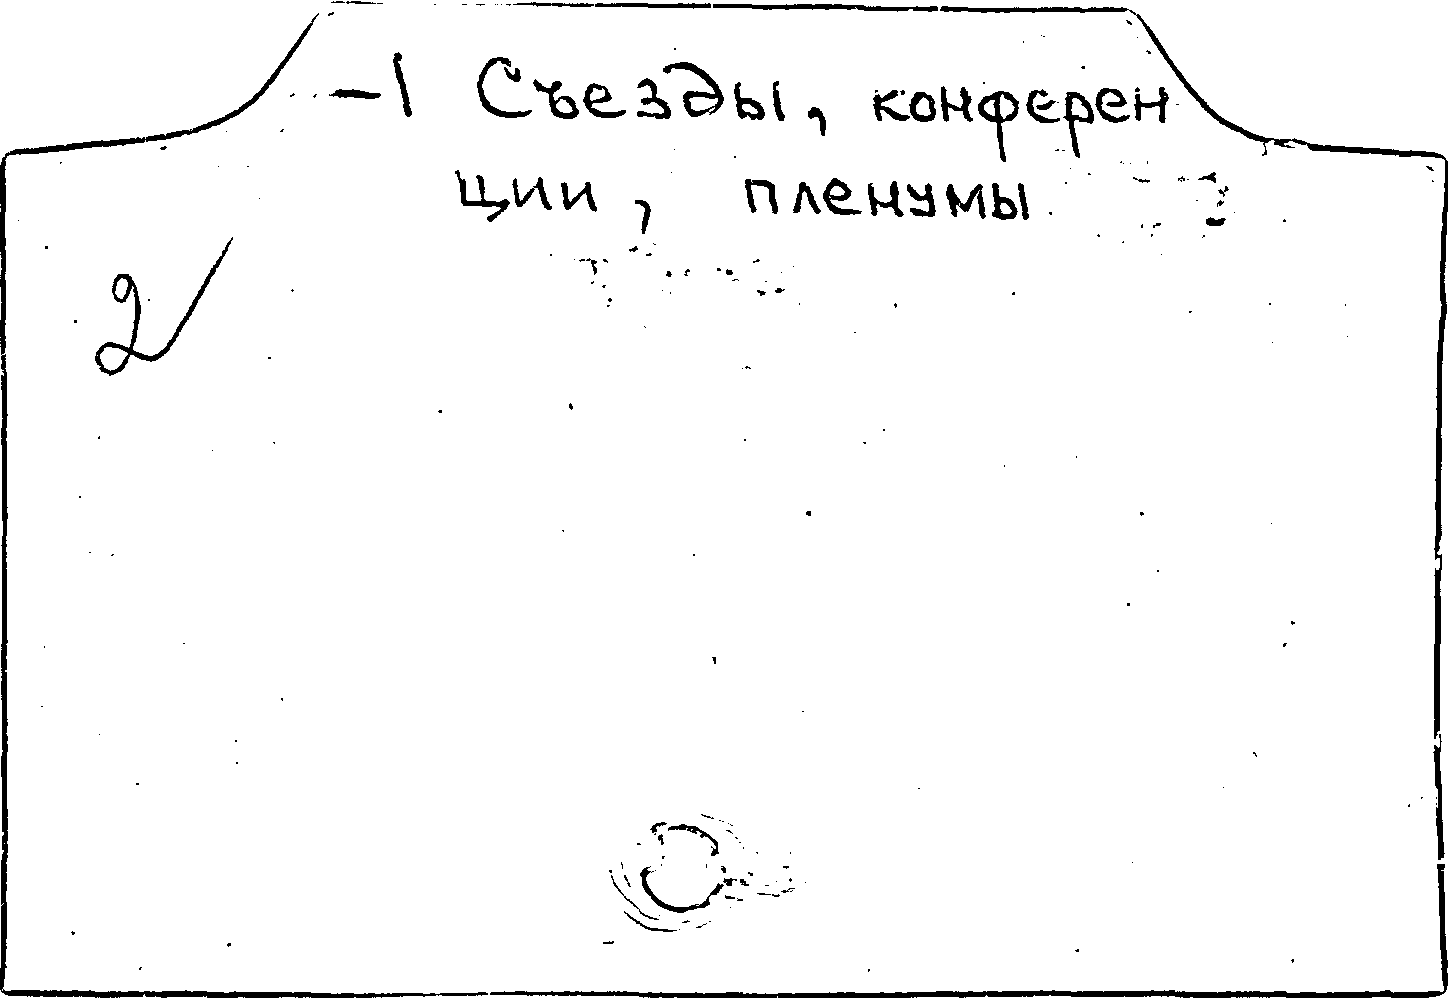 -1 Съезды, конферен
ции, пленумы
2